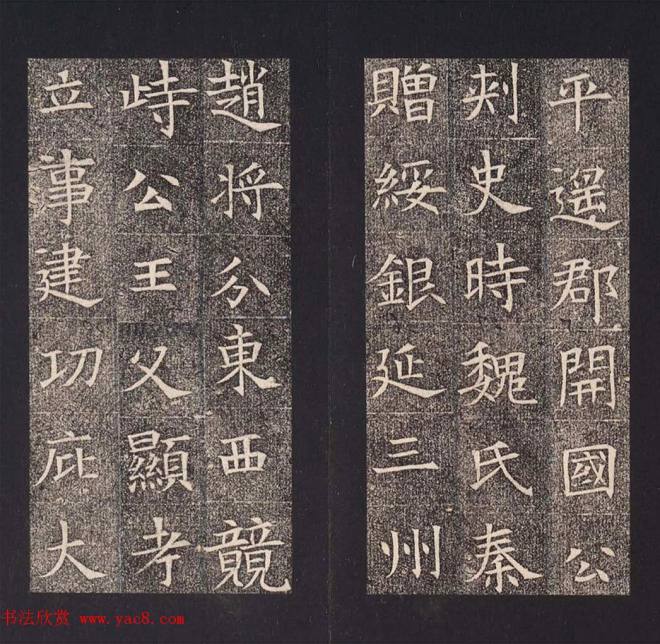 平遥郡開國公
刾史時魏氏秦
贈綏銀延三州
趙将分東西競
峙公王父顯考
立事建功庇大
书法欣赏 www.yac8.com